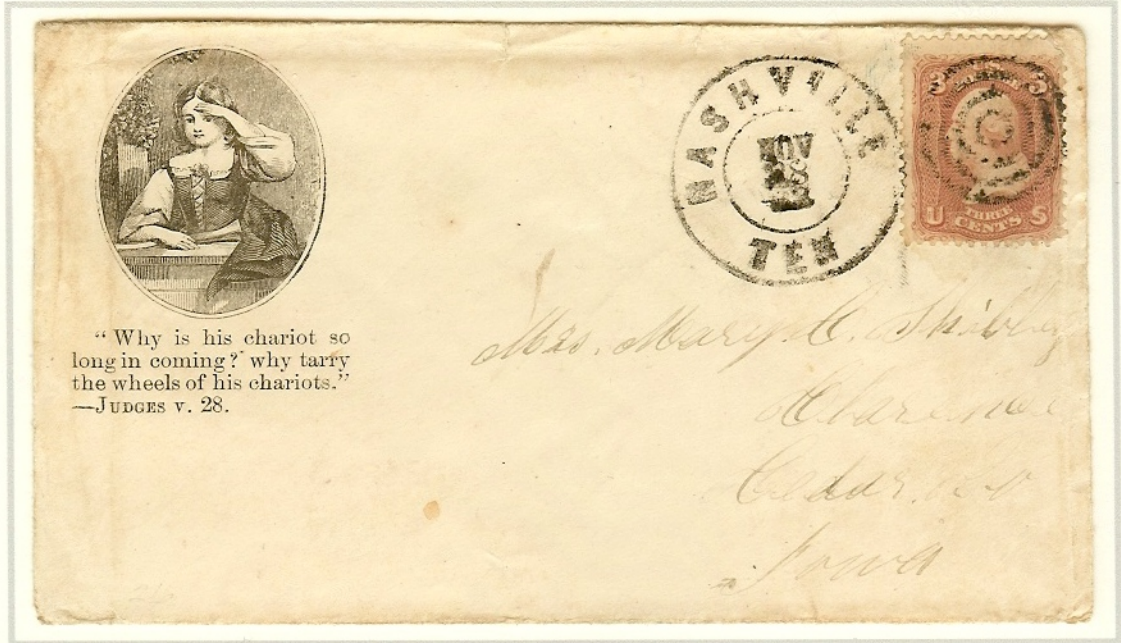 "Why is his chariot so
long in coming? why tarry
the wheels of his chariots."
—JUDGES V. 28.
NASHVILLE
NOV
TEN
3 3
U THREE S
CENTS
Mrs. Mary C. Shibley
Clarence
Cedar Co
Iowa